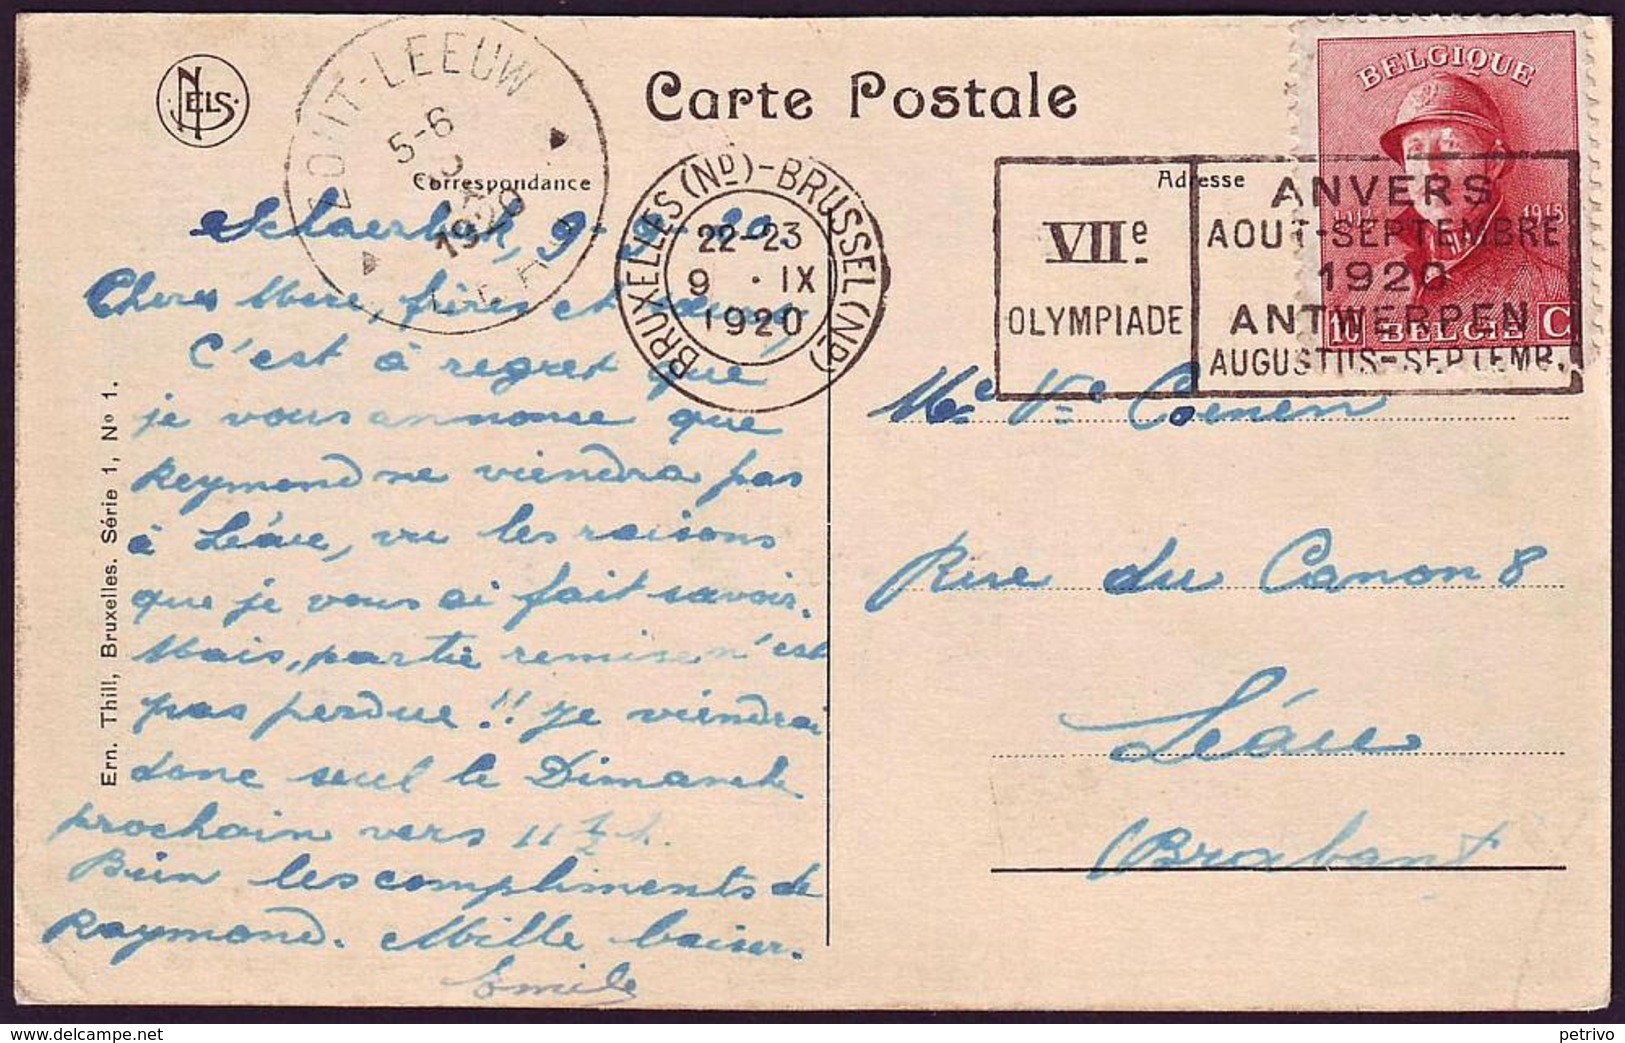 NELS
ZOUT-LEEUW
5-6
1920
LEAU
Carte Postale
Correspondance
Adresse
BRUXELLES (ND)-BRUSSEL (NR)
22-23
9 · IX
1920
VIIe
OLYMPIADE
ANVERS
AOUT-SEPTEMBRE
1920
ANTWERPEN
AUGUSTUS-SEPTEMB.
BELGIQUE
1918
10 BELGIË C
Schaerbeek, 9-9-20.
Chères Mère, frères et
C'est à regret que
je vous annonce que
Reymond ne viendra pas
à Léau, vu les raisons
que je vous ai fait savoir.
Mais, partie remise n'est
pas perdue!! je viendrai
donc seul le Dimanche
prochain vers 11 ½ h.
Bien les compliments de
Raymond. Mille baiser.
Emile
Me Vve Coenen
Rue du Canon 8
Léau
(Brabant)
Ern. Thill, Bruxelles. Série 1, No 1.
delcampe.net
petrivo